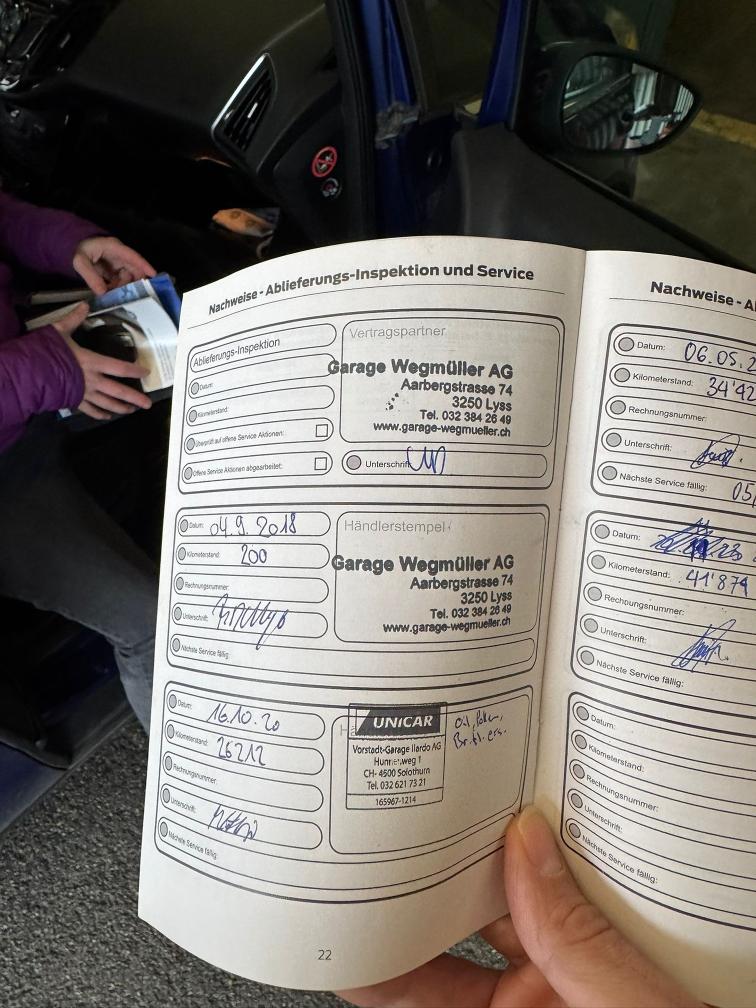 Nachweise - Ablieferungs-Inspektion und Service
Ablieferungs-Inspektion
Datum:
Kilometerstand:
Überprüft auf offene Service Aktionen:
Offene Service Aktionen abgearbeitet:
Vertragspartner
Garage Wegmüller AG
Aarbergstrasse 74
3250 Lyss
Tel. 032 384 26 49
www.garage-wegmueller.ch
Unterschrift:
Datum: 04.9.2018
Kilometerstand: 200
Rechnungsnummer:
Unterschrift:
Nächste Service fällig:
Händlerstempel
Garage Wegmüller AG
Aarbergstrasse 74
3250 Lyss
Tel. 032 384 26 49
www.garage-wegmueller.ch
Datum: 16.10.20
Kilometerstand: 26212
Rechnungsnummer:
Unterschrift:
Nächste Service fällig:
UNICAR
Vorstadt-Garage Ilardo AG
CH- 4500 Solothurn
Tel. 032 621 73 21
165967-1214
22
Nachweise - A
Datum: 06.05.2
Kilometerstand: 34'42
Rechnungsnummer:
Unterschrift:
Nächste Service fällig: 05
Datum:
Kilometerstand: 41'879
Rechnungsnummer:
Unterschrift:
Nächste Service fällig:
Datum:
Kilometerstand:
Rechnungsnummer:
Unterschrift:
Nächste Service fällig: